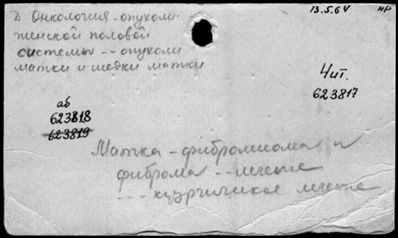 13.5.64 нр
Д Онкология - опухоли
женской половой
системы -- опухоли
матки и шейки матки
Чит.
623817
аб
623818
623819
Матка - фибромиома и
фиброма -- лечение
--- хирургическое лечение